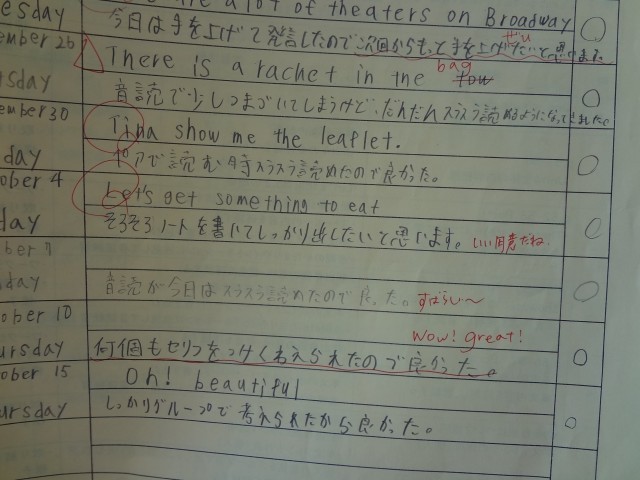 esday are a lot of theaters on Broadway
今日は手を上げて発言したので次回からもっと手を上げたいと思いました
ぜひ
ember 26 There is a rachet in the bag
音読で少しつまづいてしまうけど、だんだんスラスラ読めるようになって
ember 30 Tina show me the leaflet.
day で読む時スラスラ読めたので良かった。
ober 4 Let's get something to eat
day そろそろノートを書いてしっかり出したいと思います。 いい用意だね。
ber 7
day 音読が今日はスラスラ読めたので良った。 すばらしい〜
ober 10 Wow! great!
ursday 何個もセリフをつけくわえられたので良かった。
ober 15 Oh! beautiful
ursday しっかりグループで考えられたから良かった。